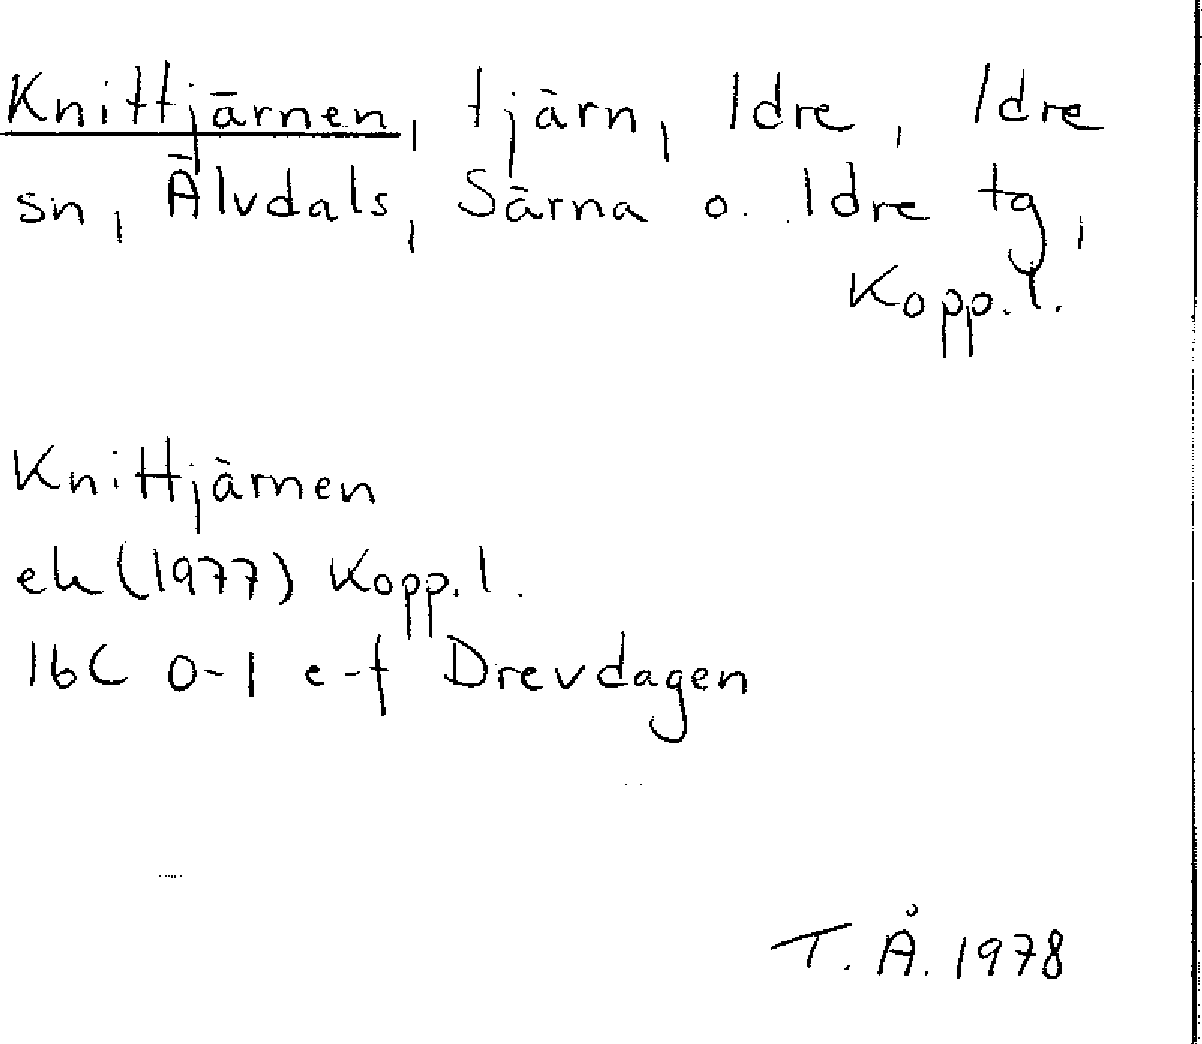 Knittjärnen, tjärn, Idre, Idre
sn, Älvdals, Särna o. Idre tg,
Kopp. l.
Knittjärnen
ek (1977) Kopp. l.
16C 0-1 e-f Drevdagen
T. Å. 1978